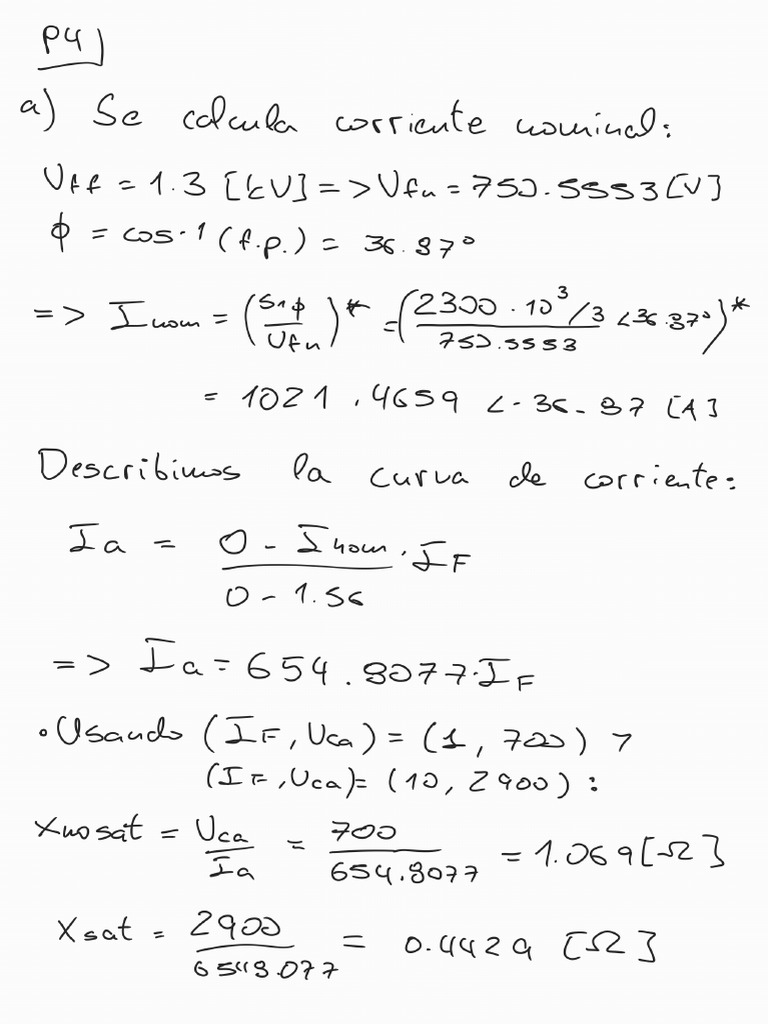 P4)
a) Se calcula corriente nominal:
Vff = 1.3 [kV] => Vfn = 750.5553 [V]
ϕ = cos-1 (f.p.) = 36.87°
=> Inom = (S1ϕ / Vfn)* = (2300 · 10^3/3 <36.87° / 750.5553)*
= 1021.4659 <-36.87 [A]
Describimos la curva de corriente:
Ia = (0 - Inom / 0 - 1.56) · IF
=> Ia = 654.8077·IF
• Usando (IF, Vca) = (1, 700) y
(IF, Vca) = (10, 2900) :
Xnosat = Vca / Ia = 700 / 654.8077 = 1.069 [Ω]
Xsat = 2900 / 6548.077 = 0.4429 [Ω]